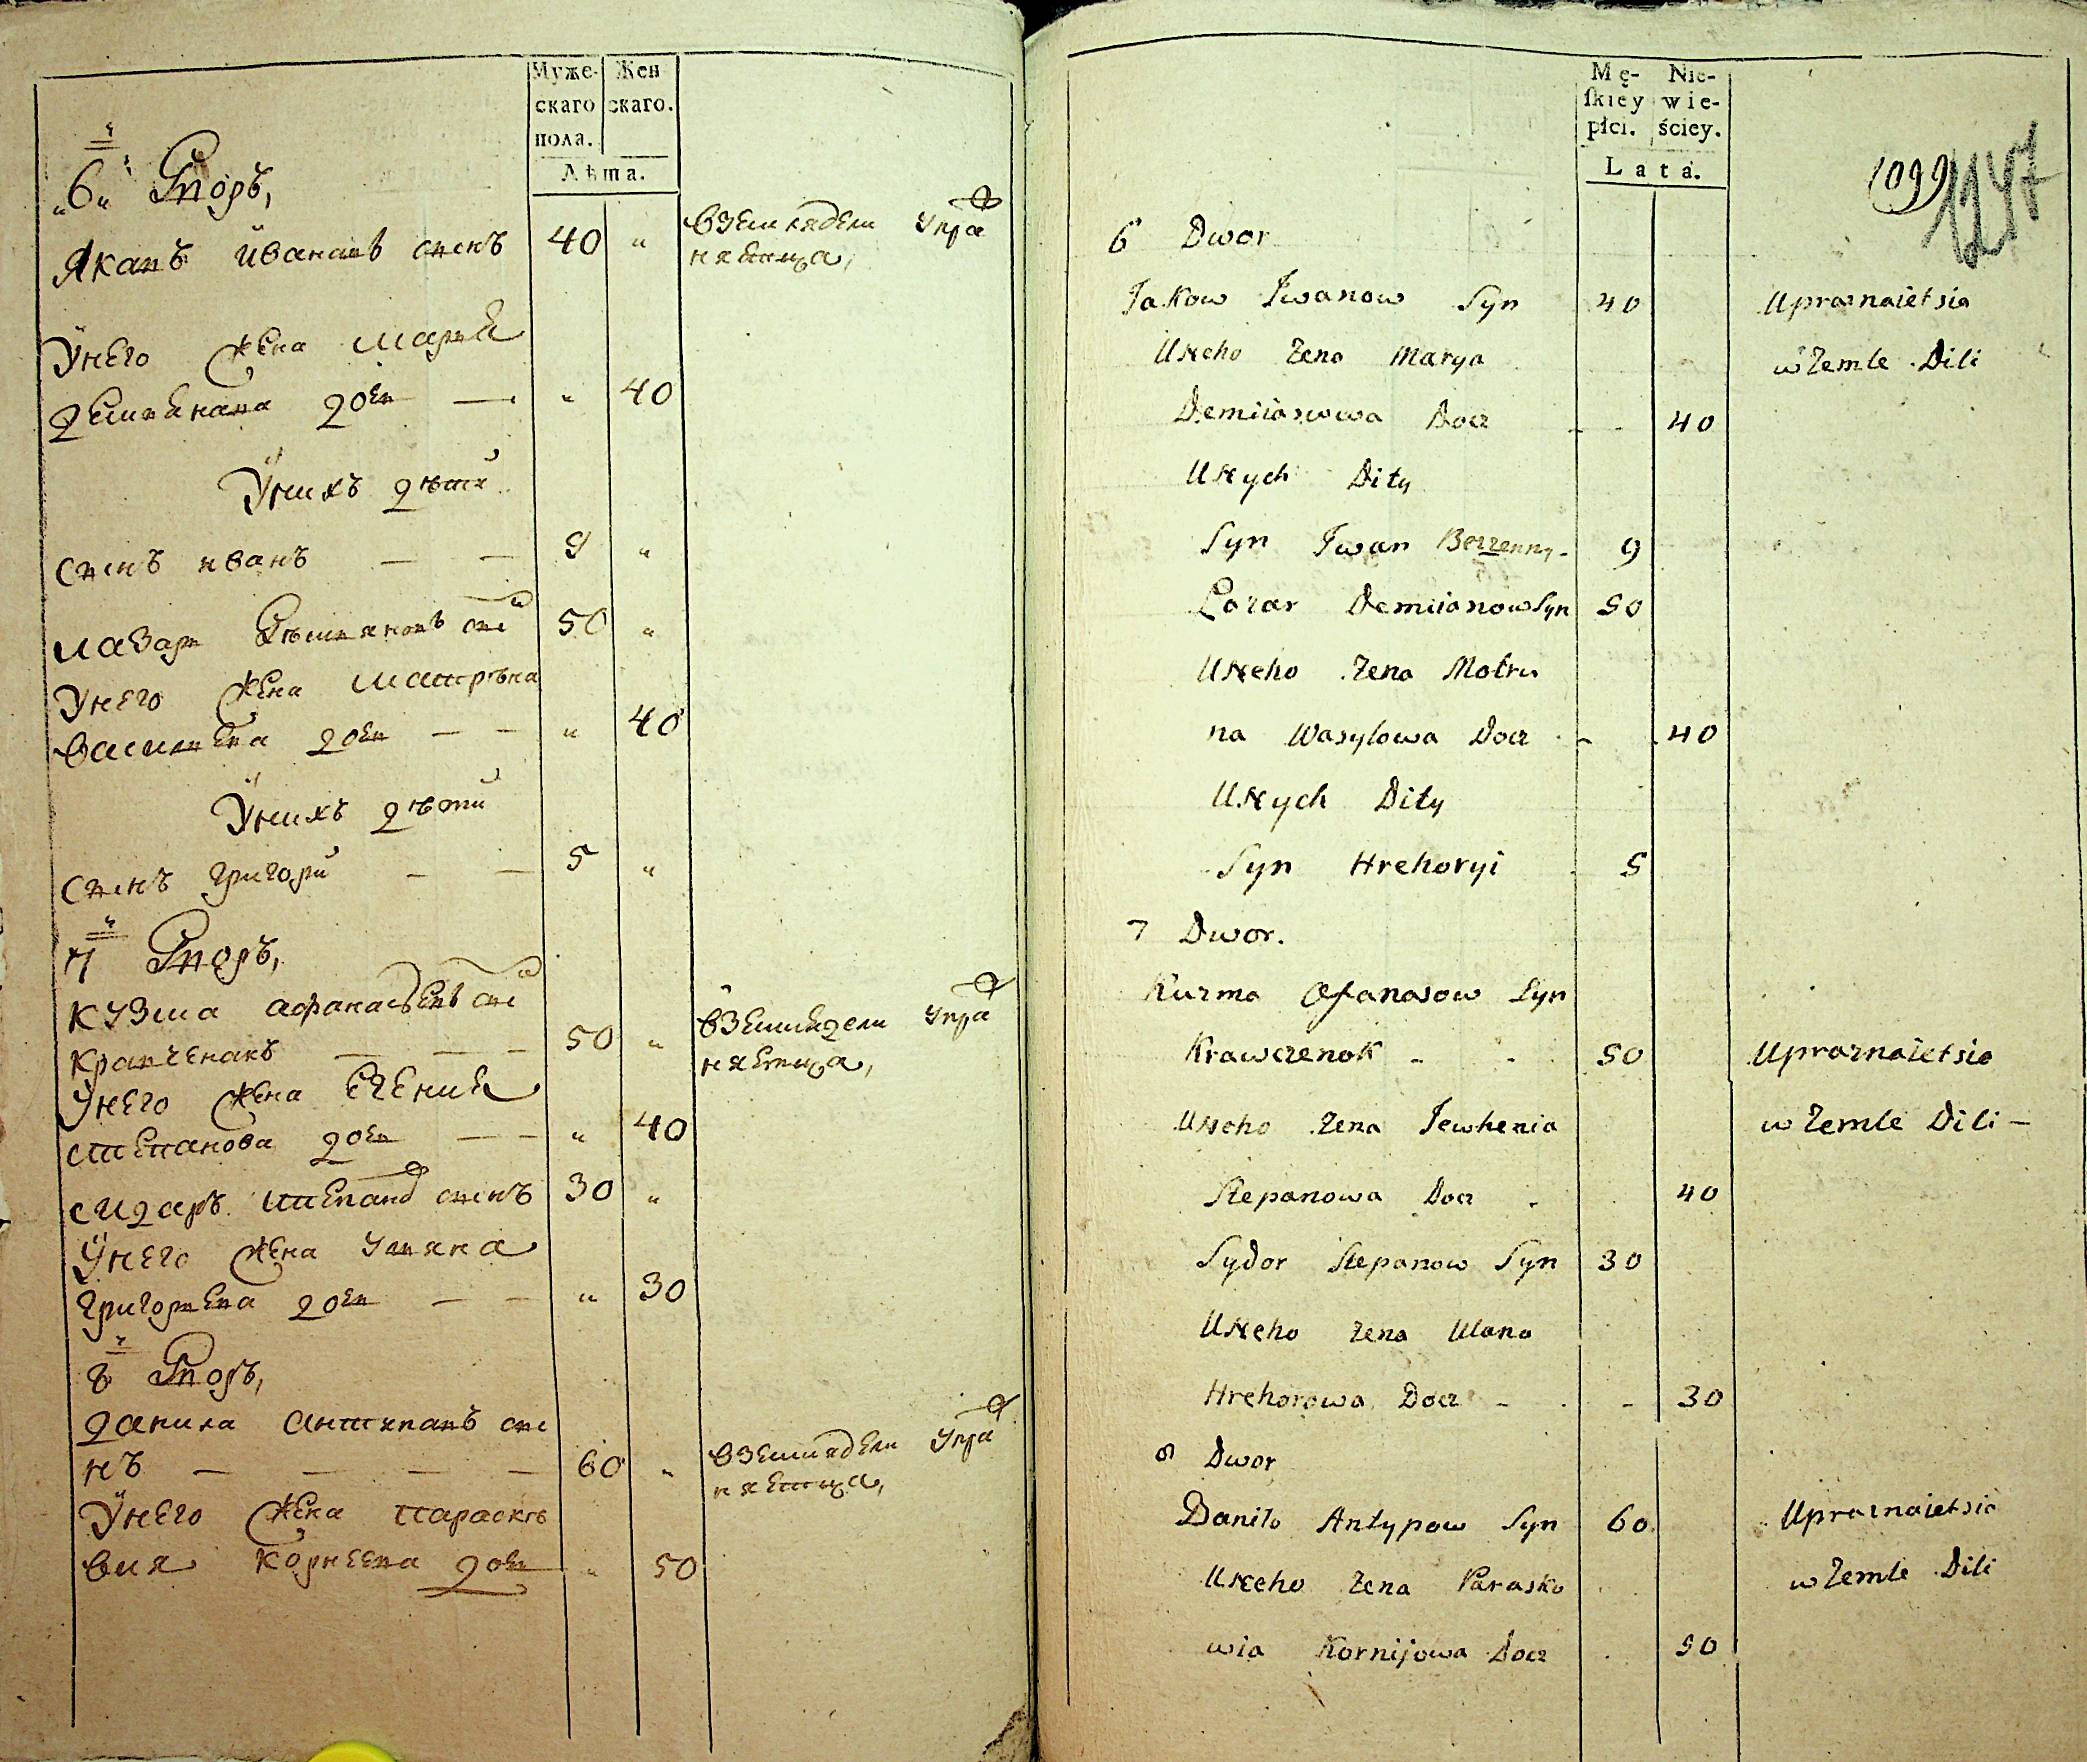 Муже-
скаго
пола.
Жен
скаго.
Лѣта.
„6„й Дворъ,
Яковъ Ивановъ сынъ 40 „ вземледели Упра
няетца,
Унего жена Марья
Демьянова дочь — „ 40
Унихъ дѣти
Сынъ иванъ — — 9 „
Лазарь Демьяновъ сы 50 „
Унего жена Матрѣна
Васильева дочь — — „ 40
Унихъ дѣти
Сынъ Григорий — — 5 „
7й Дворъ,
Кузма Афанасьевъ сы
Кравченокъ — — — 50 „ вземледели Упра
няетца,
Унего жена Евгения
Степанова дочь — — „ 40
Сидаръ Степанов сынъ 30 „
Унего жена Ульяна
Григорьева дочь — — „ 30
8й Дворъ,
Данила Антиповъ сы
нъ — — — — 60 „ вземледели Упра
няетца,
Унего жена Параскѣ
вия Корнеева дочь „ 50
Mę-
ſkiey
płci.
Nie-
wie-
ściey.
Lata.
1099
1247
6 Dwor
Jakow Iwanow Syn 40 Upraznaietsia
Uneho Zena Marya w Zemle Dili
Demiianowa Docz - - 40
Unych Dity
Syn Iwan Bezzenny - 9
Lazar Demiianow Syn 50
Uneho Zena Motru
na Wasylowa Docz - 40
Unych Dity
Syn Hrehoryi 5
7 Dwor.
Kuzma Ofanasow Syn
Krawczenok - - 50 Upraznaietsia
Uneho Zena Jewhenia w Zemle Dili -
Stepanowa Docz - 40
Sydor Stepanow Syn 30
Uneho Zena Ulana
Hrehorowa Docz - - - 30
8 Dwor
Danilo Antypow Syn 60 Upraznaietsia
Uneho Zena Parasko w Zemle Dili
wia Kornijowa Docz 50